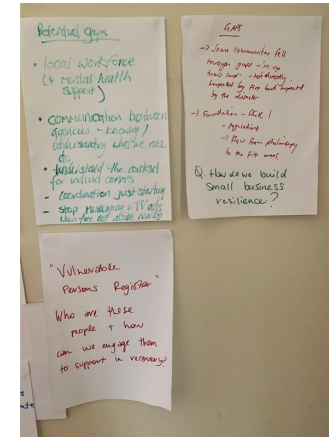 Potential gaps
• local workforce
(+ mental health
support)
• communication between
agencies - knowing/
understanding what're each
do
• understand the context
for individ
- coordination just starting
- stop
when fire not
GAPS
-> Some communities fell
through gaps - in no
- not directly
impacted by fire but impacted
by the disaster
-> Foundation -
-
- Flow from philanthropy
to the fire areas
Q. How do we build
small business
resilience?
"Vulnerable
Persons Register"
Who are these
people + how
can we engage them
to support in recovery?